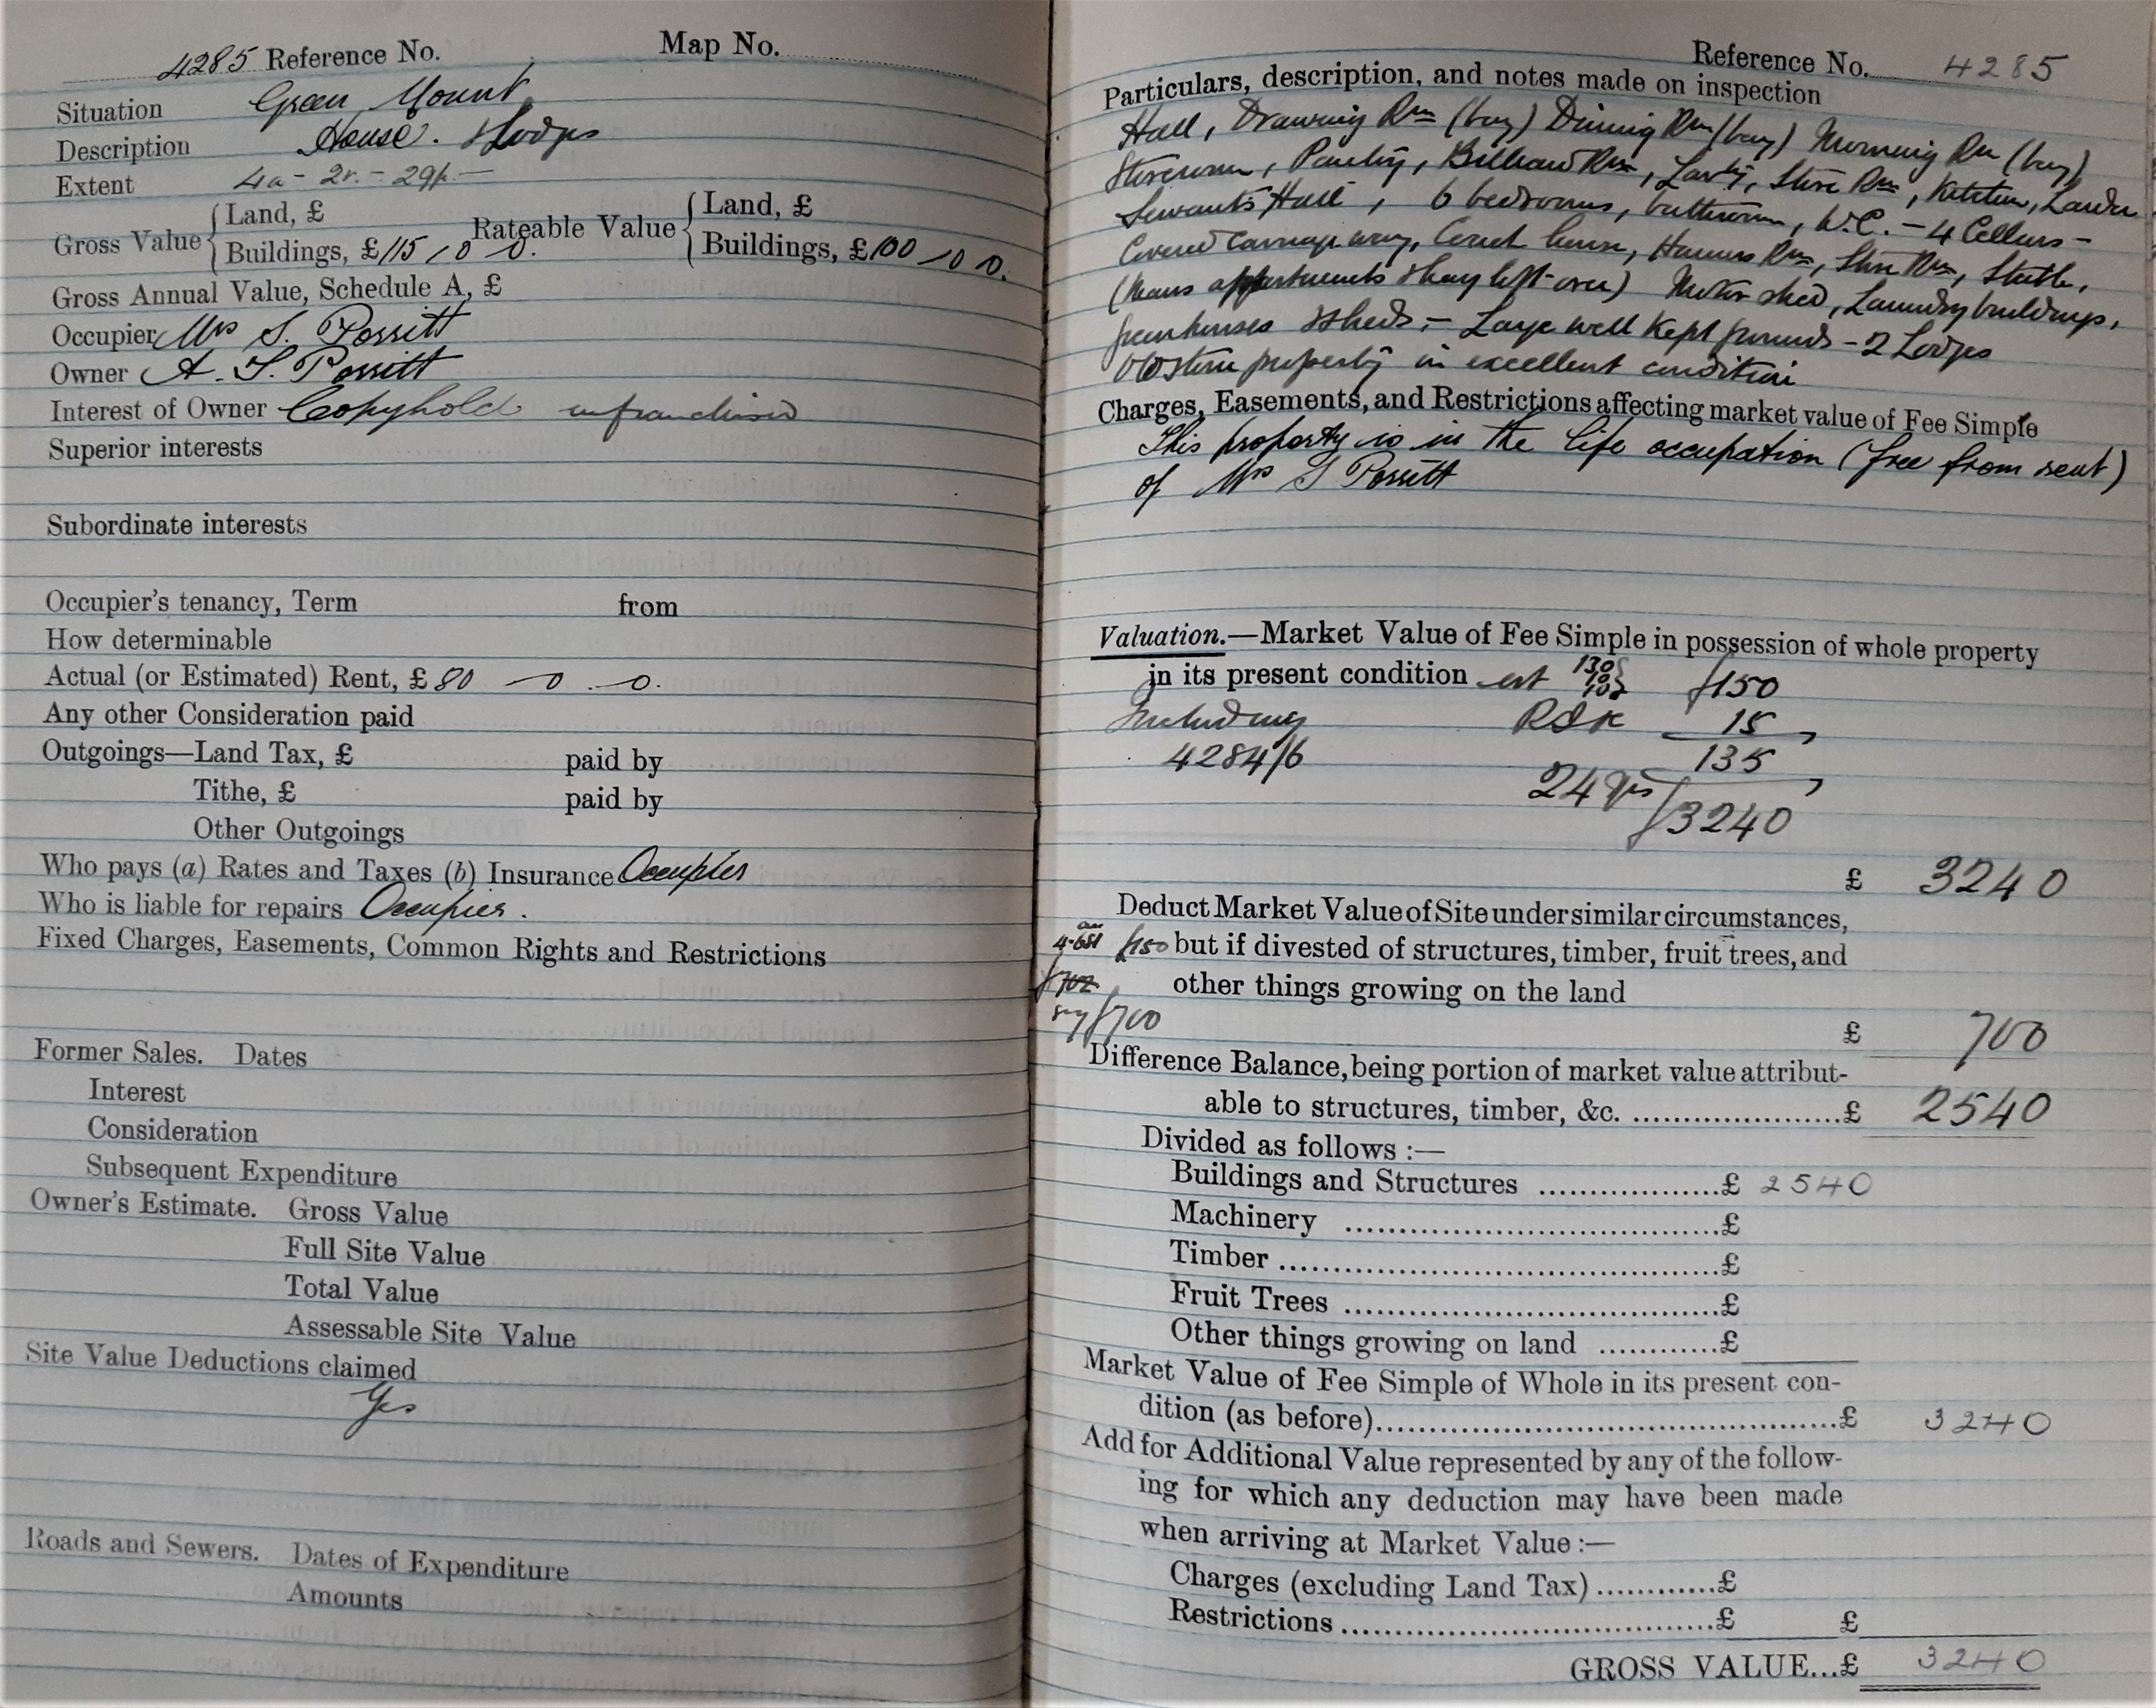 4285 Reference No. Map No.
Situation Green Mount
Description House. & Lodges
Extent 4a - 2r. - 29p. —
Gross Value { Land, £ Rateable Value { Land, £
Buildings, £115 / 0 0. Buildings, £100 / 0 0.
Gross Annual Value, Schedule A, £
Occupier Mrs S. Porritt
Owner A. S. Porritt
Interest of Owner Copyhold enfranchised
Superior interests
Subordinate interests
Occupier's tenancy, Term from
How determinable
Actual (or Estimated) Rent, £80 — 0 . — 0.
Any other Consideration paid
Outgoings—Land Tax, £ paid by
Tithe, £ paid by
Other Outgoings
Who pays (a) Rates and Taxes (b) Insurance Occupier
Who is liable for repairs Occupier.
Fixed Charges, Easements, Common Rights and Restrictions
Former Sales. Dates
Interest
Consideration
Subsequent Expenditure
Owner's Estimate. Gross Value
Full Site Value
Total Value
Assessable Site Value
Site Value Deductions claimed
Yes
Roads and Sewers. Dates of Expenditure
Amounts
Reference No. 4285
Particulars, description, and notes made on inspection
Hall, Drawing Rm (bay) Dining Rm (bay) Morning Rm (bay)
Storeroom, Pantry, Billiard Rm, Lavty, Store Rm, Kitchen, Larder
Servants Hall, 6 bedrooms, bathroom, W.C. - 4 Cellars -
Covered Carriage way, Coach house, Harness Rm, Store Rm, Stable,
(Mans appartments & hay loft over) Motor shed, Laundry buildings,
Greenhouses & sheds, - Large well kept grounds - 2 Lodges
Old Stone property in excellent condition
Charges, Easements, and Restrictions affecting market value of Fee Simple
This property is in the life occupation (free from rent)
of Mrs S Porritt
Valuation.—Market Value of Fee Simple in possession of whole property
in its present condition est 130 10 10} £150
Including R&R 15
4284/6 135
24 yrs £3240
£ 3240
Deduct Market Value of Site under similar circumstances,
4.681 £150 but if divested of structures, timber, fruit trees, and
£702 other things growing on the land
say £700 £ 700
Difference Balance, being portion of market value attribut-
able to structures, timber, &c. ....................£ 2540
Divided as follows :—
Buildings and Structures ..................£ 2540
Machinery ......................................£
Timber ..............................................£
Fruit Trees ......................................£
Other things growing on land .............£
Market Value of Fee Simple of Whole in its present con-
dition (as before)..............................................£ 3240
Add for Additional Value represented by any of the follow-
ing for which any deduction may have been made
when arriving at Market Value :—
Charges (excluding Land Tax) ............£
Restrictions ......................................£ £
GROSS VALUE...£ 3240